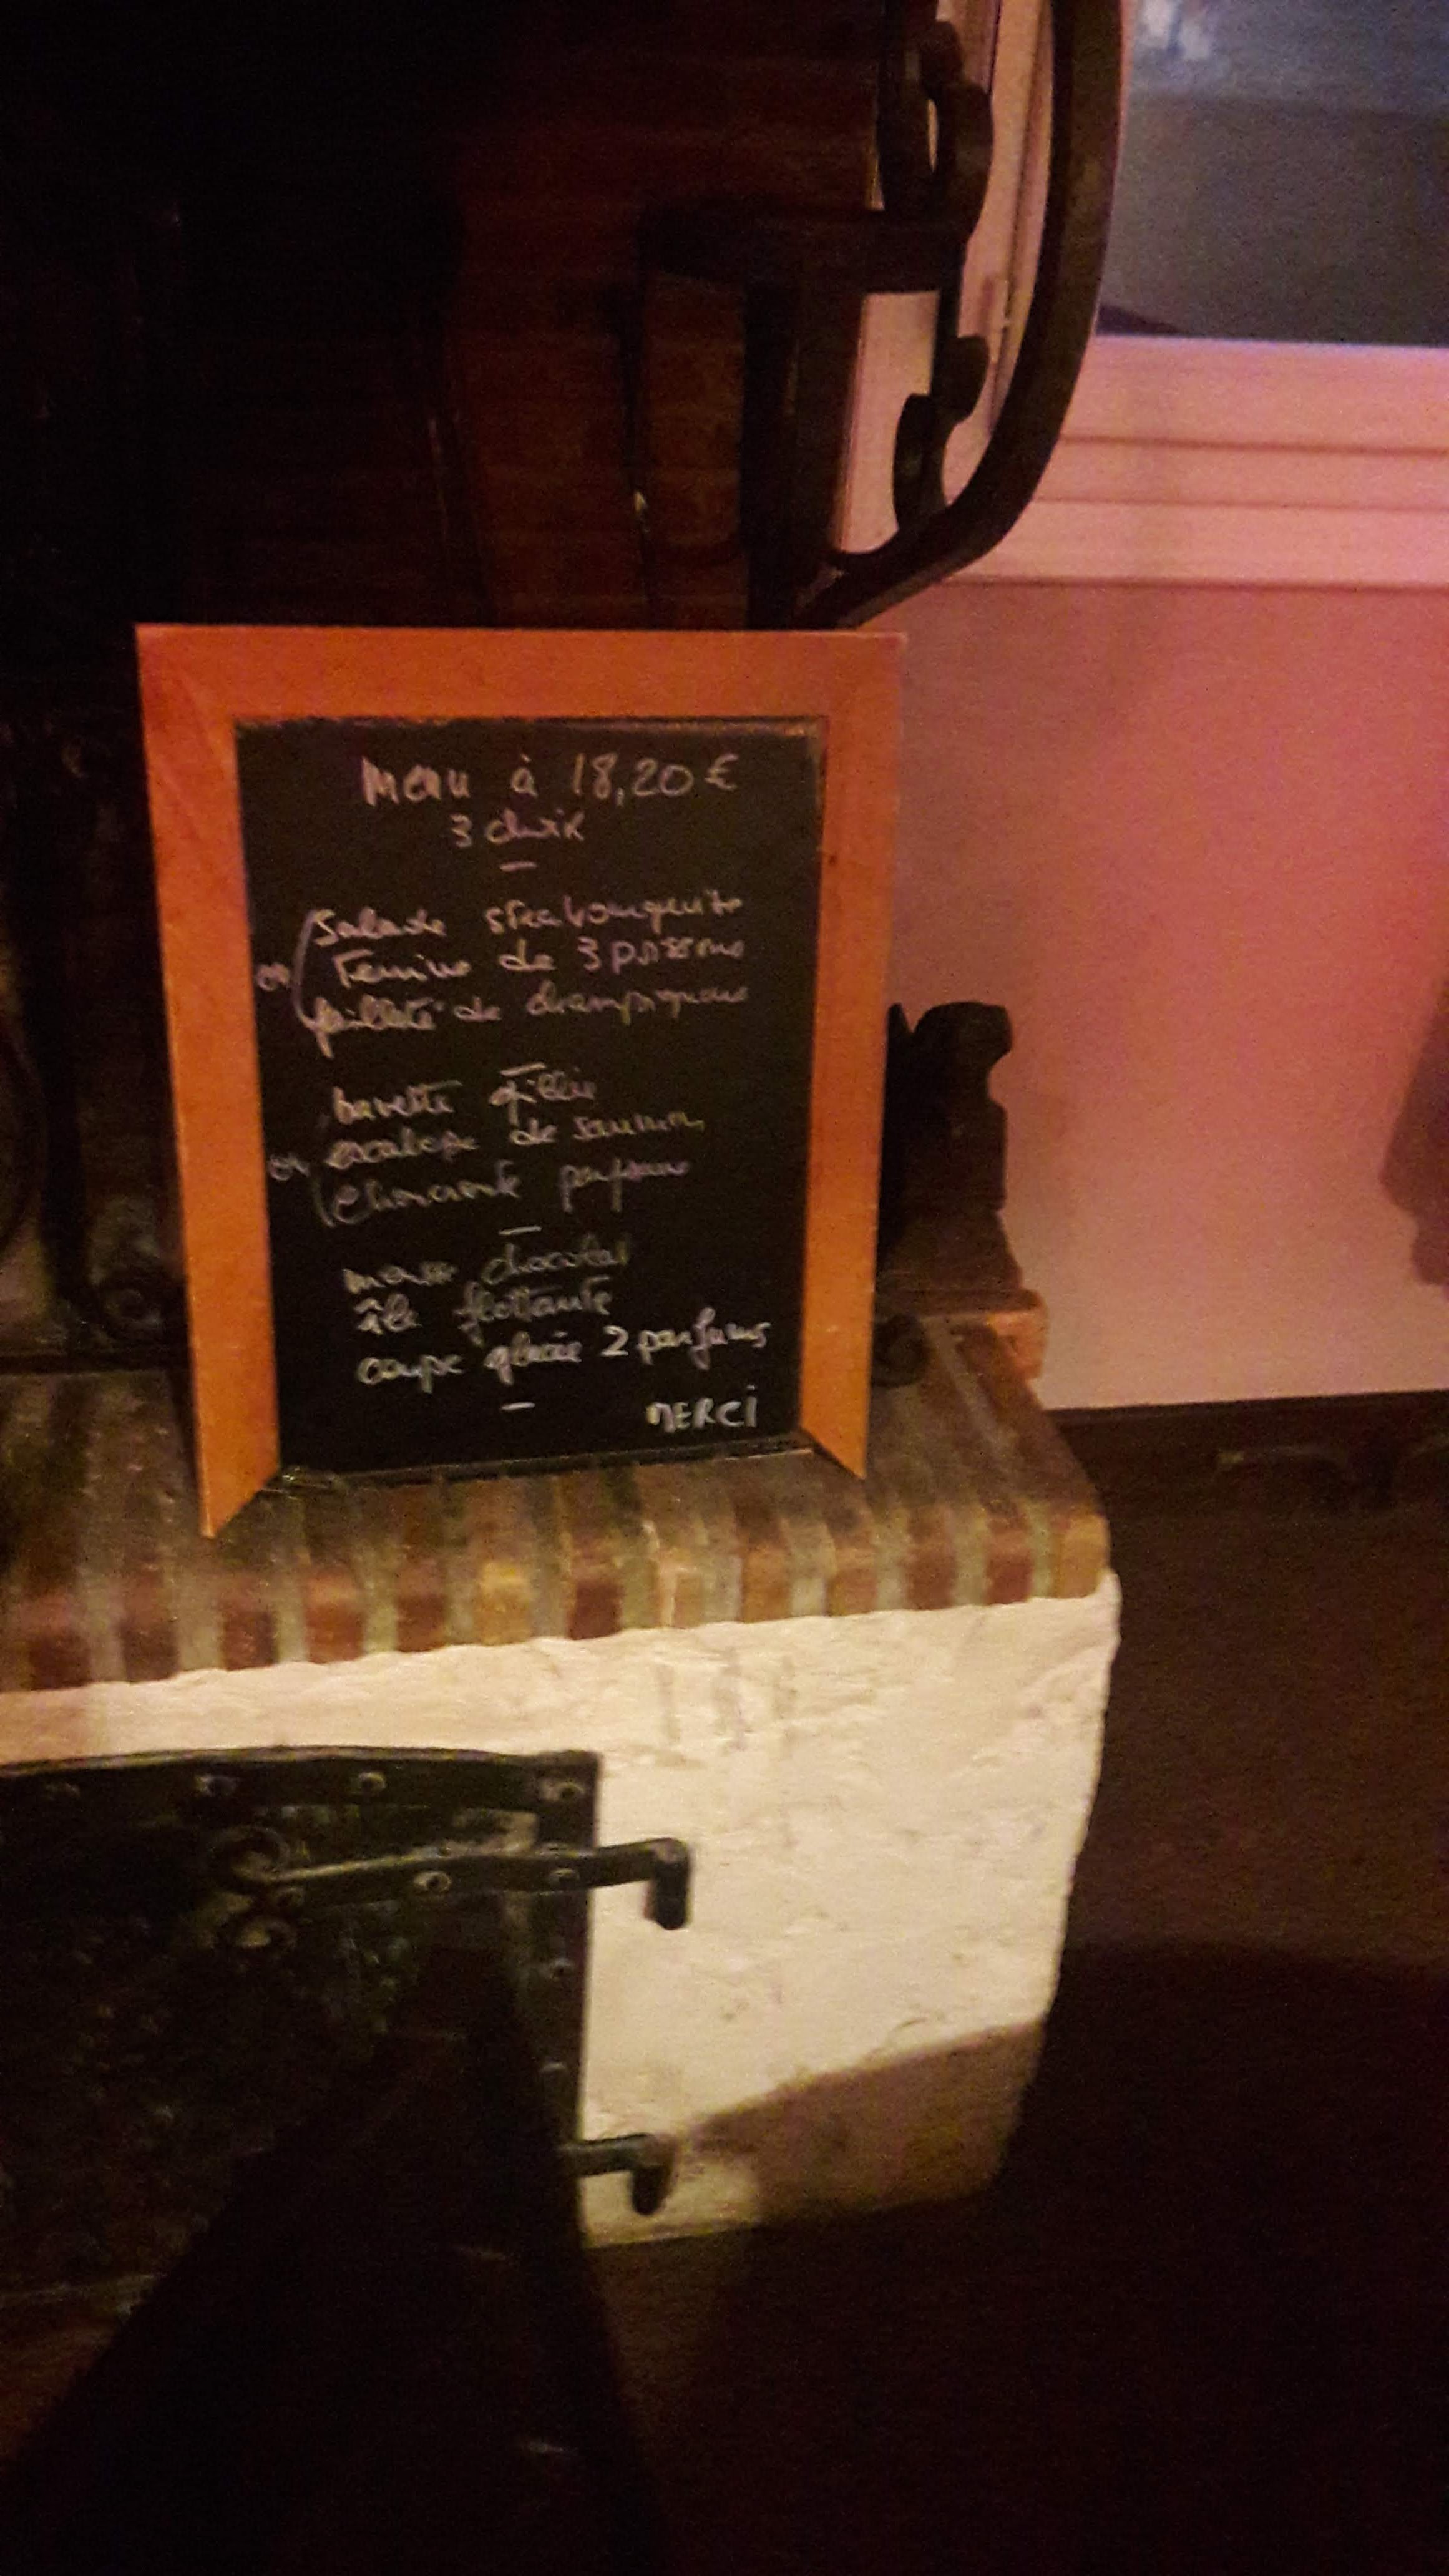 Menu à 18,20 €
3 choix
—
Salade strasbourgeoise
ou Terrine de 3 poissons
feuilleté de champignons
—
bavette grillée
ou escalope de saumon
—
mousse chocolat
île flottante
coupe glacée 2 parfums
—
MERCI